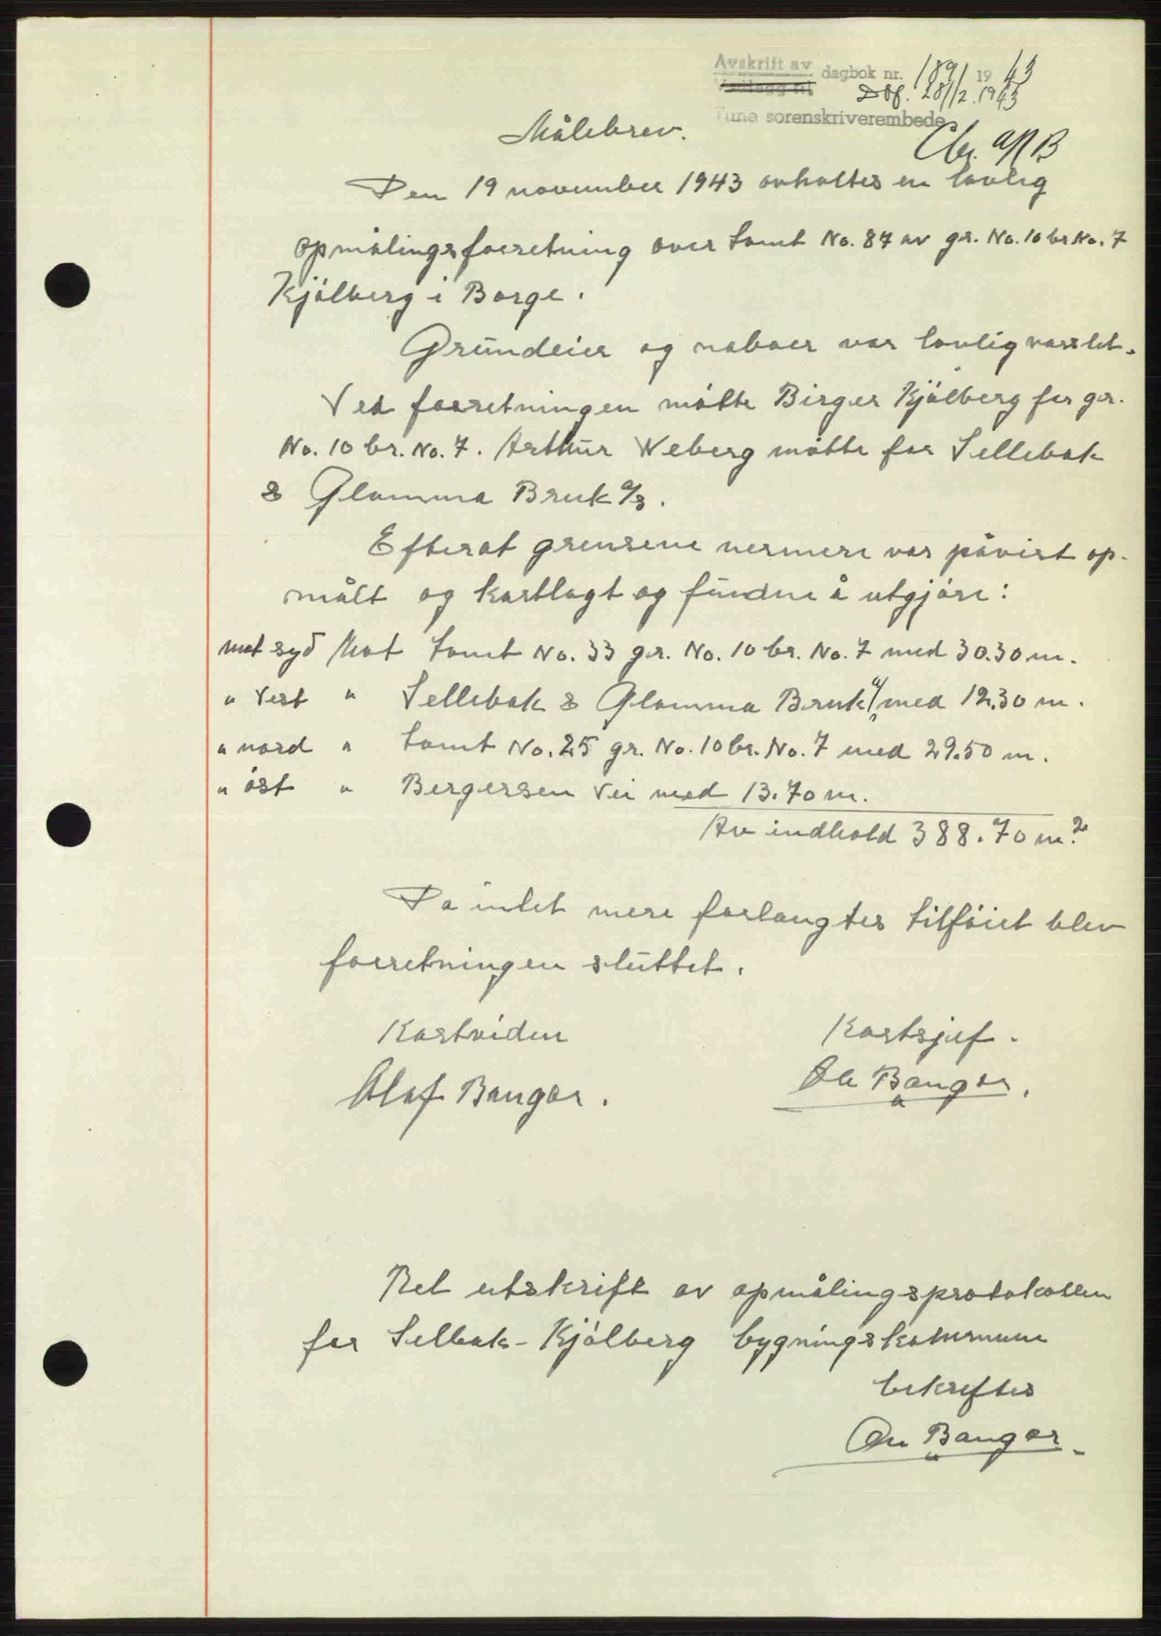 Avskrift av
Vedlegg til dagbok nr. 1891 1943
Dbf. 28/12.1943
Tune sorenskriverembede
Målebrev.
Den 19 november 1943 avholtes en lovlig
opmålingsforretning over tomt No. 87 av gr. No. 10 br No. 7
Kjölberg i Borge.
Grundeier og naboer var lovlig varslet.
Ved forretningen mötte Birger Kjölberg for gr.
No. 10 br. No. 7. Arthur Weberg mötte for Sellebak
& Glomma Bruk a/s.
Efterat grensene nermere var påvist op-
målt og kartlagt og fundne å utgjöre:
mot syd Mot tomt No. 33 gr. No. 10 br. No. 7 med 30.30 m.
" Vest " Sellebak & Glomma Bruk a/s med 12.30 m.
" nord " tomt No. 25 gr. No. 10 br. No. 7 med 29.50 m.
" öst " Bergersen Vei med 13.70 m.
Av indhold 388.70 m².
Da intet mere forlangtes tilföiet blev
forretningen sluttet.
Kartviden Kartsjef.
Olaf Bangor. Ole Bangor.
Ret utskrift av opmålingsprotokollen
for Selbak-Kjölberg bygningskommune
bekreftes
Bangor